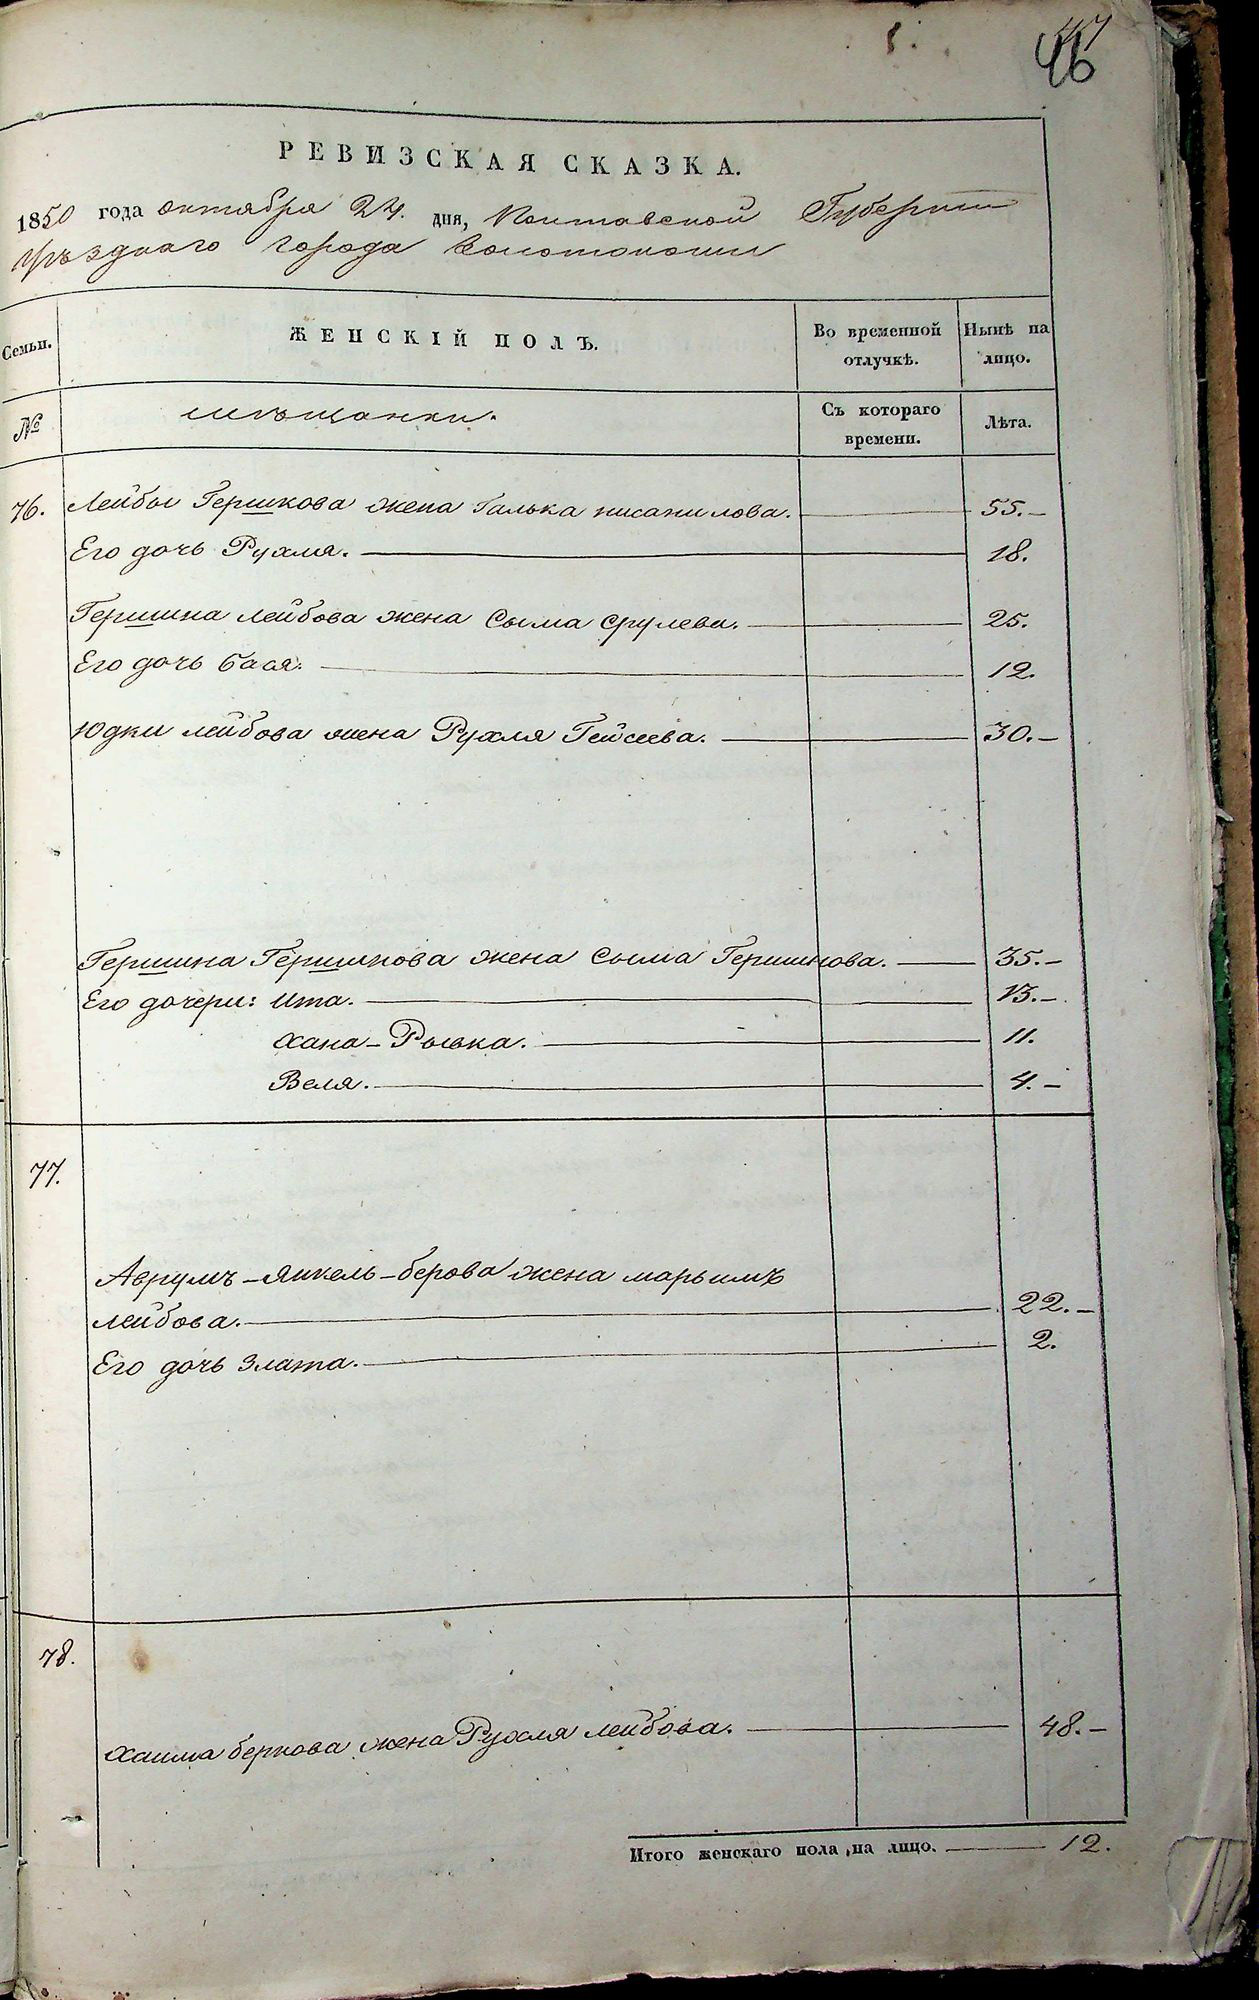 47
46
РЕВИЗСКАЯ СКАЗКА.
1850 года октября 24. дня, Полтавской Губернии
уѣзднаго города Золотоноши
Семьи.
ЖЕНСКІЙ ПОЛЪ.
Во временной отлучкѣ.
Нынѣ на лицо.
№
мѣщанки.
Съ котораго времени.
Лѣта.
76. Лейбы Гершкова жена Галька 55.
Его дочь Рухля. 18.
Гершка Лейбова жена Сыма Срулева. 25.
Его дочь Бася. 12.
Юдки Лейбова жена Рухля 30.
Гершка Гершкова жена Сыма Гершкова. 35.
Его дочери: Ита. 13.
Хана-Роська. 11.
Веля. 4.
77.
Аврумъ-Янкель-Берова жена Марьимъ
Лейбова. 22.
Его дочь Злата. 2.
78.
Хаима Беркова жена Рухля Лейбова. 48.
Итого женскаго пола на лицо. 12.